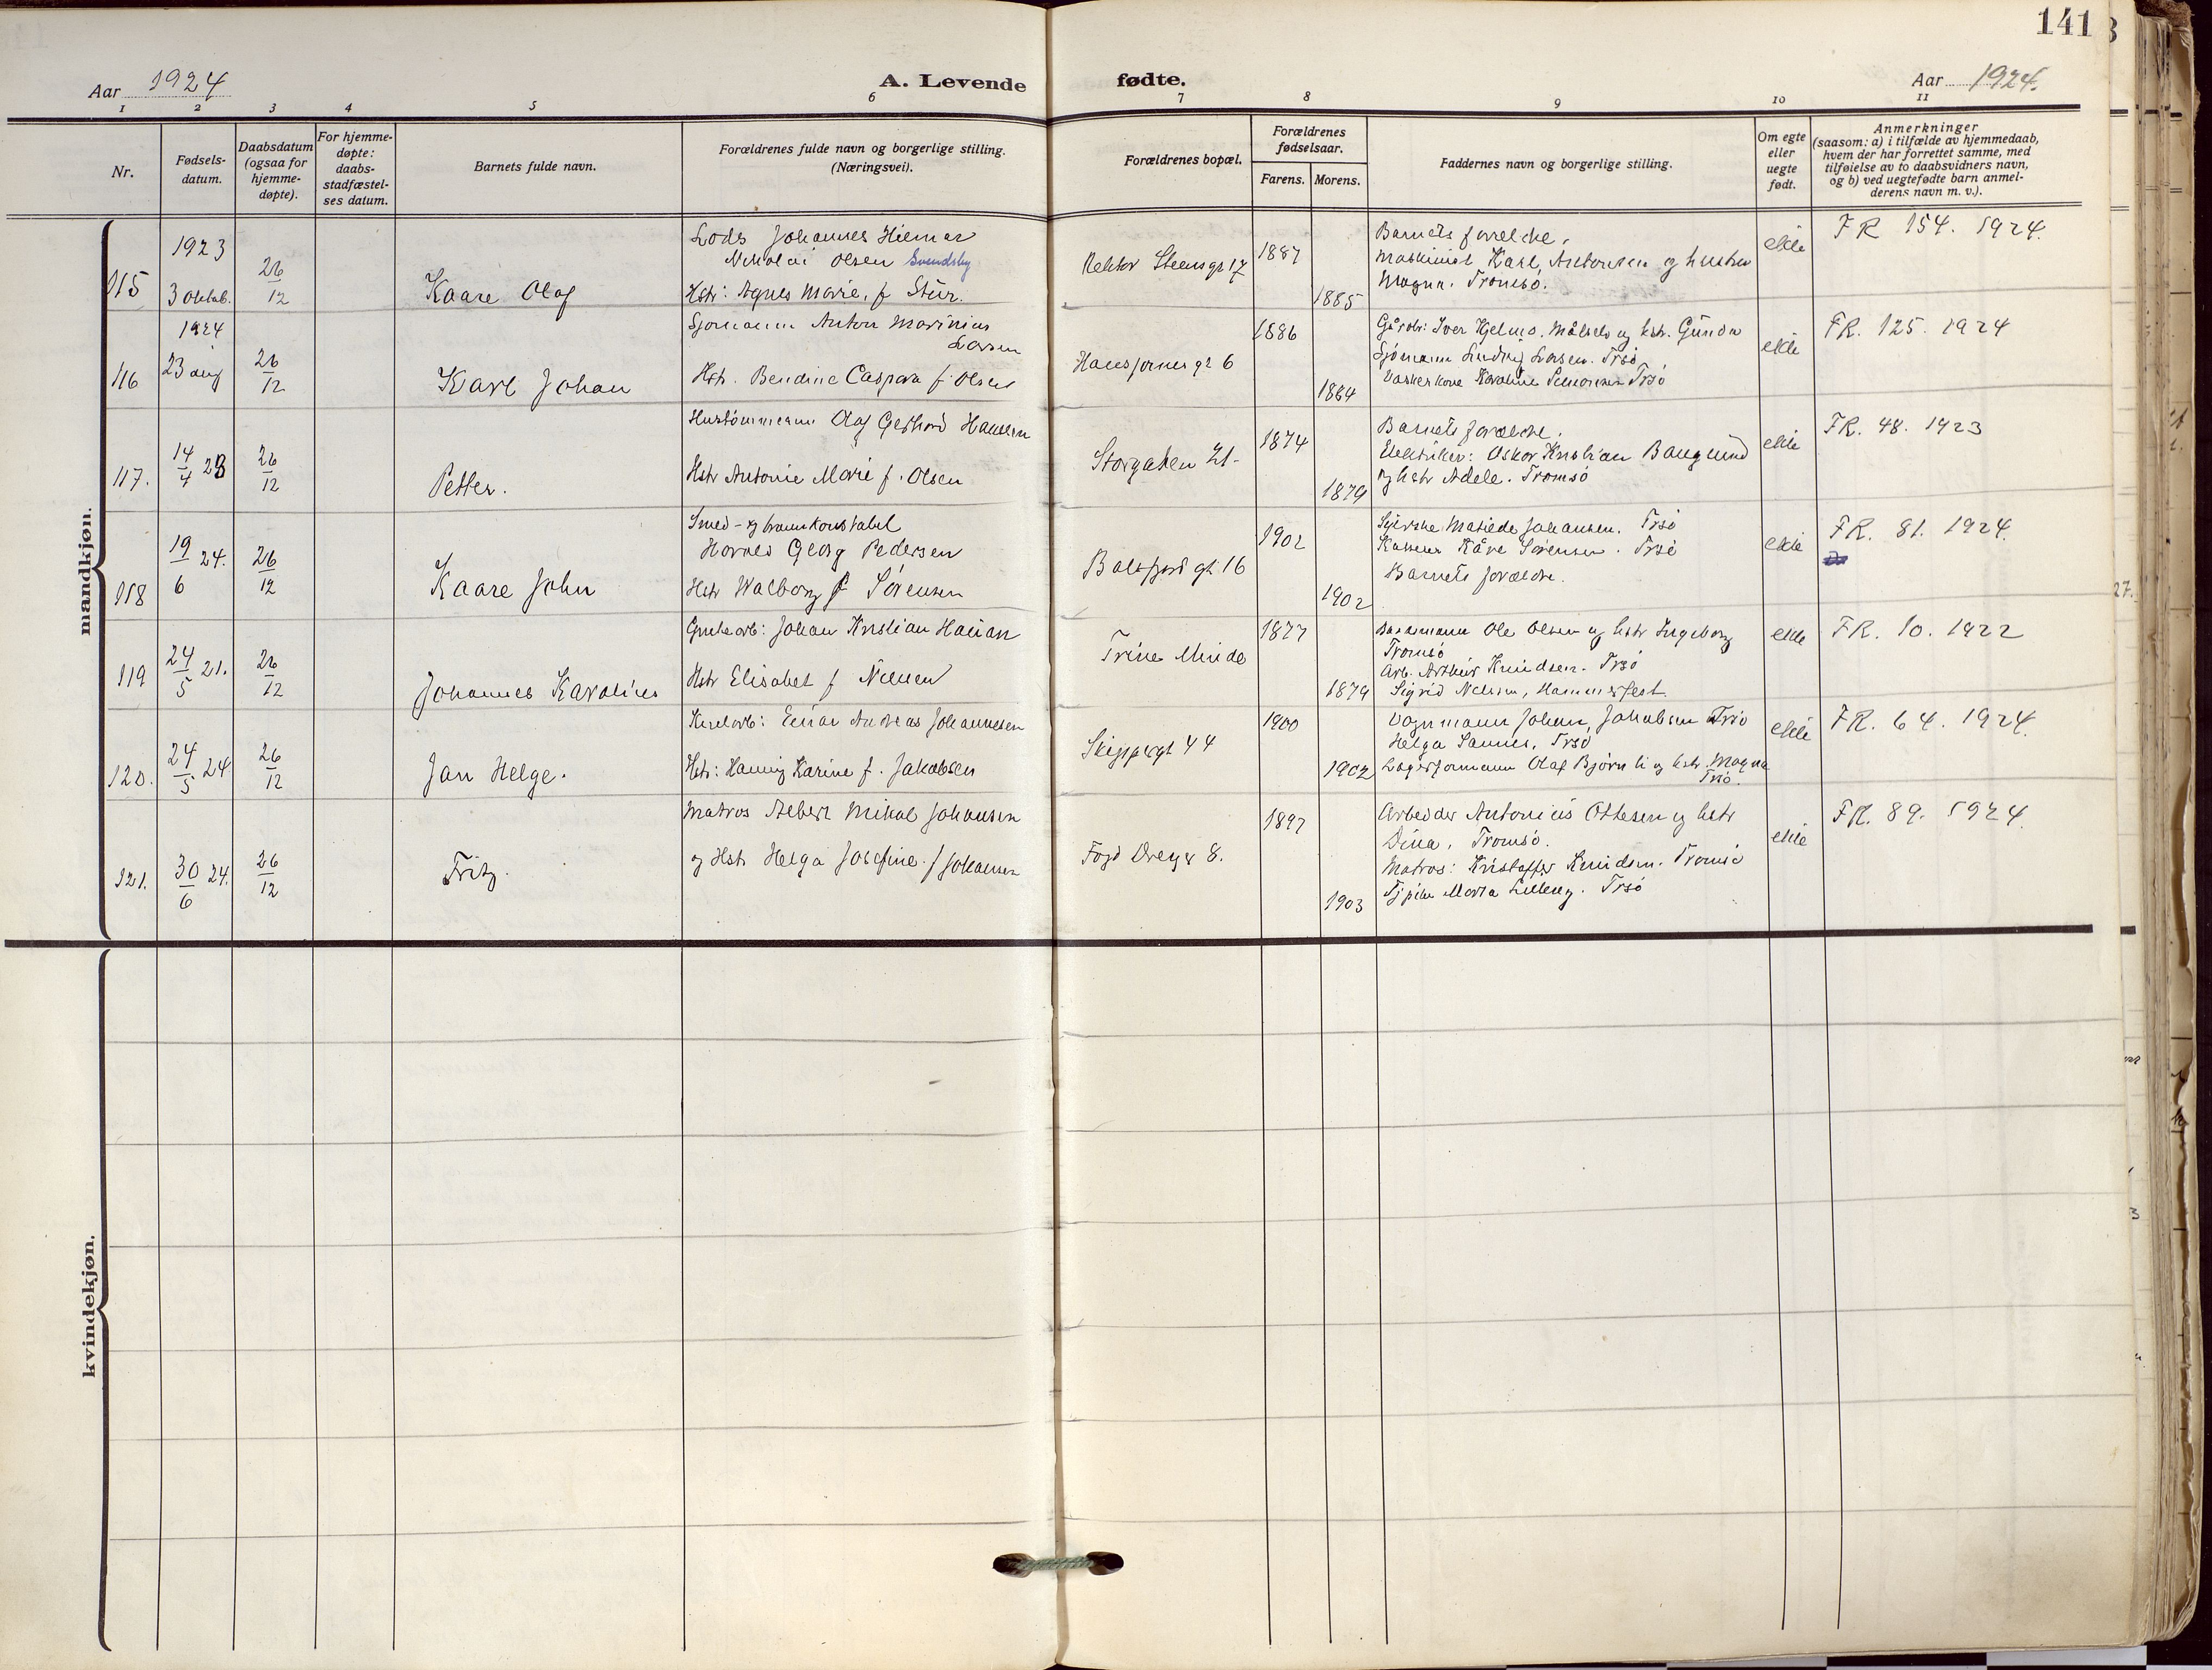 141
Aar 1924
A. Levende fødte.
Aar 1924.
1 2 3 4 5 6 7 8 9 10 11
Nr.
Fødsels-
datum.
Daabsdatum
(ogsaa for
hjemme-
døpte).
For hjemme-
døpte:
daabs-
stadfæstel-
ses datum.
Barnets fulde navn.
Forældrenes fulde navn og borgerlige stilling.
(Næringsvei).
Forældrenes bopæl.
Forældrenes
fødselsaar.
Farens. Morens.
Faddernes navn og borgerlige stilling.
Om egte
eller
uegte
født.
Anmerkninger
(saasom: a) i tilfælde av hjemmedaab,
hvem der har forrettet samme, med
tilføielse av to daabsvidners navn,
og b) ved uegtefødte barn anmel-
derens navn m. v.).
mandkjøn.
115
1923
3 oktob.
26/12
Kaare Olaf
Lods Johannes Hilmar
Nikolai Olsen Svendsby
Hstr: Agnes Marie, f Stür.
Rektor Steensgt 17
1887
1885
Barnets forældre.
Maskinist Karl Antonsen og hustru
Magna. Tromsø.
ekte
FR 154. 1924.
116
1924
23 aug
26/12
Karl Johan
Sjømann Anton Marinius
Larsen
Hstr. Bendine Caspara f. Olsen
Hansjordnesgt 6
1886
1884
Gårdb: Iver Hjelmo. Målselv og hstr. Gunda
Sjømann Ludvig Larsen. Trsø
Vaskerkone Karoline Simonsen Trsø
ekte
FR. 125. 1924
117.
14/4 23
26/12
Petter.
Hustømmermann Olaf Gerhard Hansen
Hstr Antonie Marie f. Olsen
Storgaten 21-
1874
1879
Barnets forældre.
Elektriker: Oskar Kristian Bangsund
og hstr Adele. Tromsø
ekte
FR. 48. 1923
118
19/6 24.
26/12
Kaare John
Smed- og brannkonstabel
Georg Pedersen
Hstr Walborg f Sørensen
Balsfjord gt. 16
1902
1902
Syerske Matilde Johansen. Trsø
Kåre Sørensen. Trsø
Barnets forældre.
ekte
FR. 81. 1924.
119
24/5 21.
26/12
Johannes Karolius
Grubearb: Johan Kristian
Hstr Elisabet f Nilsen
Trine Minde
1877
1879
Ole Olsen og hstr Ingeborg
Tromsø
Arb. Arthur Knudsen. Trsø
Sigrid Nilsen, Hammerfest.
ekte
FR. 10. 1922
120.
24/5 24
26/12
Jan Helge.
Einar Andreas Johannesen
Hstr: Hanny Karine f. Jakobsen
Skippergt 44
1900
1902
Vognmann Johan Jakobsen Trsø
Helga Sannes, Trsø
Lagerformann Olaf Bjørnli og hstr. Magna
Trsø.
ekte
FR. 64. 1924.
121.
30/6 24.
26/12
Fritz.
Matros Albert Mikal Johansen
og Hstr Helga Josefine f Johansen
Fogd Dreyer 8.
1897
1903
Arbeider Antonius Ottesen og hstr
Dina, Tromsø.
Matros: Kristoffer Knudsen. Tromsø
Maria Trsø
ekte
FR. 89. 1924.
kvindekjøn.